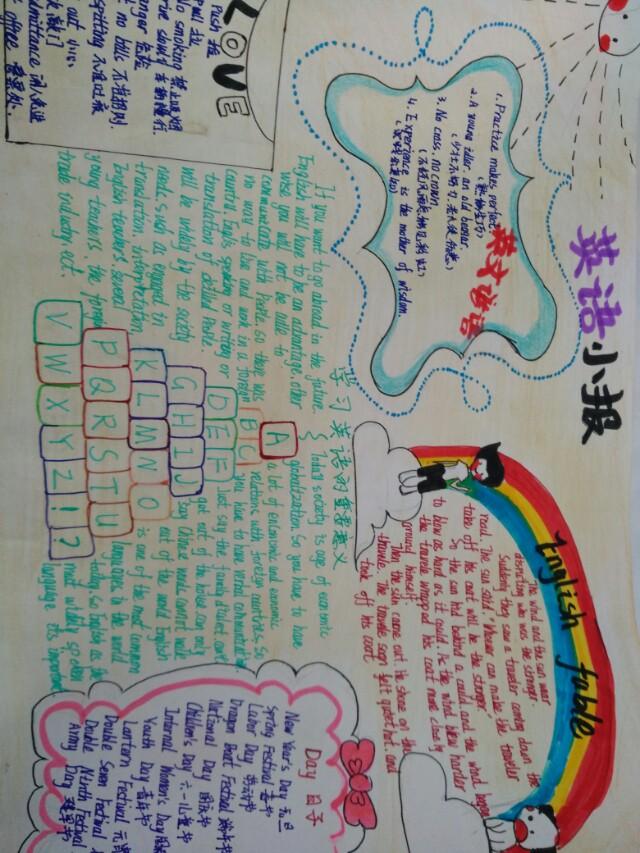 英语小报
英文谚语
1. Practice makes perfect.
(熟能生巧)
2. A young idler, an old
(少壮不努力,老大徒伤悲)
3. No cross, no crown
4. Experience is the mother of wisdom.
LOVE
Push 推
pull 拉
No smoking 禁止吸烟
spitting 不准
English fable
The wind and the sun wear
disputing who was the stronger.
Suddenly they saw a traveler coming down the
road. The sun said: "Whoever can make the traveler
take off his coat will be the stronger."
So the sun hid behind a could and the wind began
to blow as hard as it could. He the wind blew harder
the travele wrapped his coat more closely
ground himself.
Then the sun came out. he shone on the
travele. The travele soon felt quest hot. and
took off his coat
学习英语的重要意义
today society is age of economic
globalization. So you have to have
a lot of enconomic and economic
relations with foreign countries. So
you have to have verbal communication.
just say the family didn't can't
get out of the house can only
say Chinese words cannot walk
out of the world English
is one of the most common
languages in the world
today. so English as the
most widely spoken
language its important
If you want to go ahead in the future.
English will have to be an advantage, other
wise you will not be able to
communicate with Pople. so there was
no ways to live and work in a foreign
country. Englis speaking or writing or
translation of skilled Pople.
will be widely by the society
needs. such engaged in
translation, interpretation,
English teachers, several
young teachers, the foreign
trade industry ect.
A
B C
D E F
G H I J
K L M N O
P Q R S T U
V W X Y Z ! ?
Day 日子
New Year's Day 元旦
Spring Festival 春节
Labor Day 劳动节
Dragon Boat Festival 端午节
National Day 国庆节
Children's Day 六一儿童节
Internal Women's Day
Youth Day 青年节
Lantern Festival 元
Double Seven Festival
Double Ninth Festival
Army Day 建军节